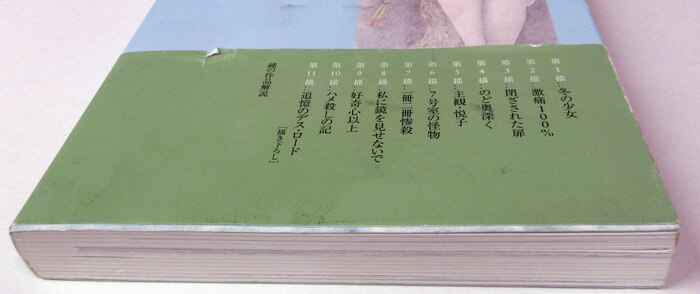 第1描…冬の少女
第2描…激痛100%
第3描…閉ざされた扉
第4描…のど奥深く
第5描…主観・悦子
第6描…7号室の怪物
第7描…一冊二冊惨殺
第8描…私に鏡を見せないで
第9描…好奇心以上
第10描…ハメ殺しの記
第11描…追憶のデス・ロード
[描き下ろし]
純の作品解説